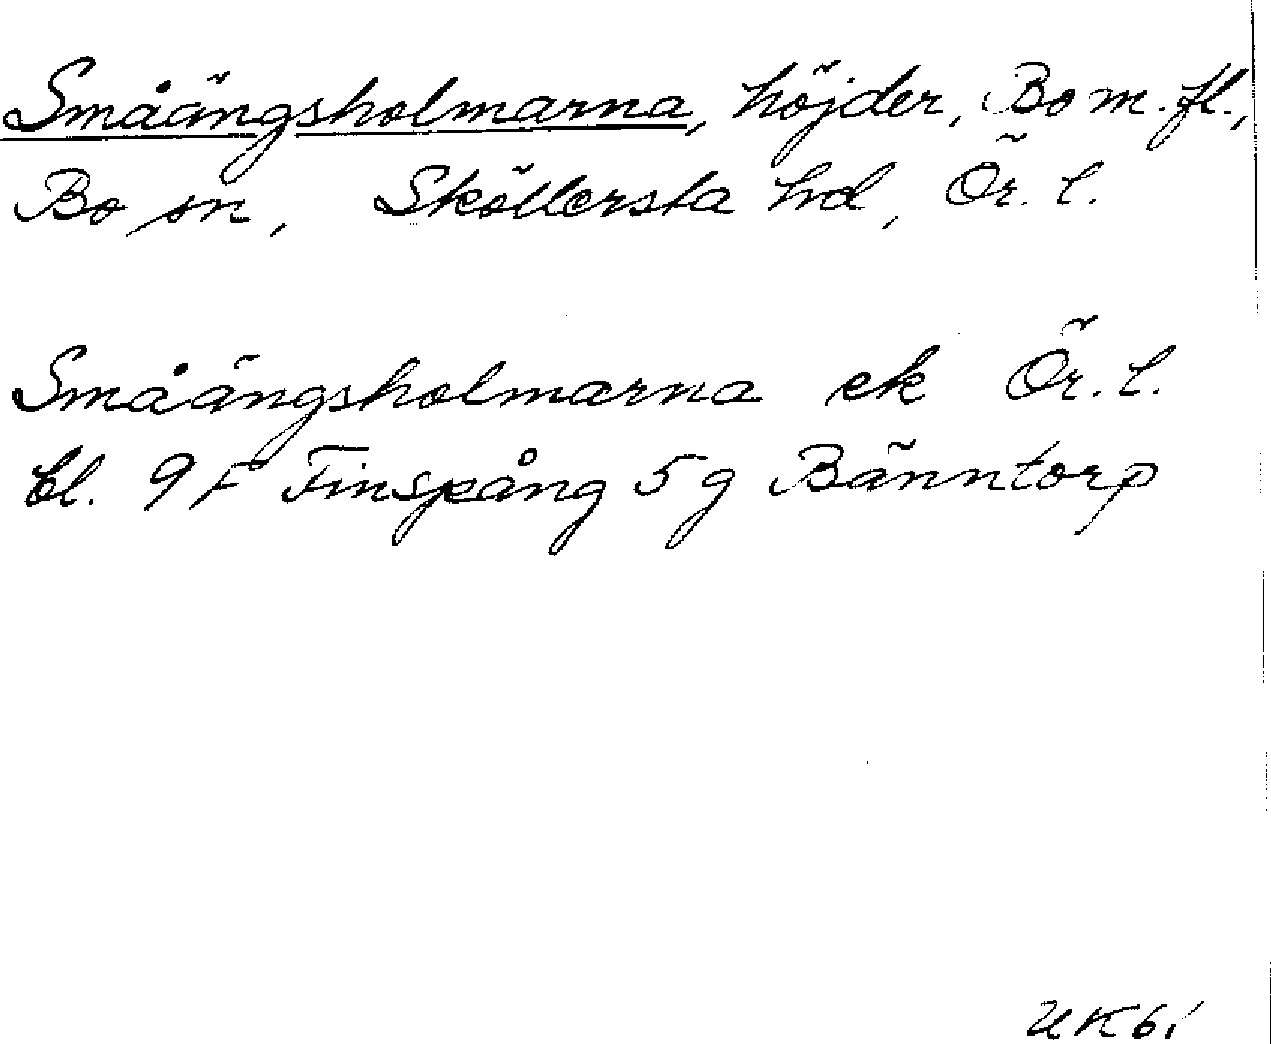 Småängsholmarna, höjder, Bo m. fl.,
Bo sn, Sköllersta hd, Ör. l.
Småängsholmarna ek Ör. l.
bl. 9 F Finspång 5 g Bänntorp
UK 61